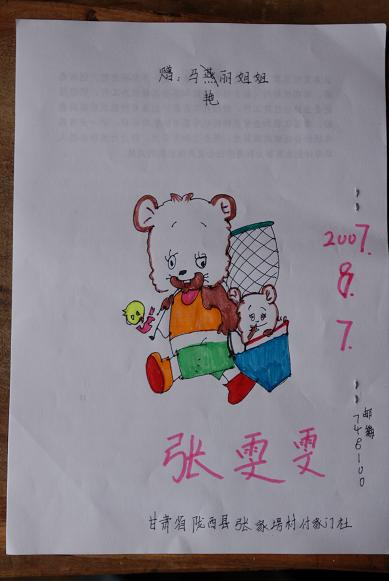 赠：马燕丽姐姐
艳
2007.
8.
7.
邮编
748100
张雯雯
甘肃省陇西县张家塄村付家门社